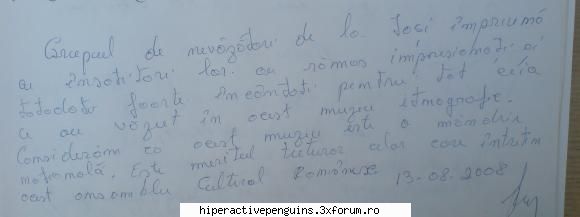 Grupul de nevăzători de la Iași împreună
cu însoțitorii lor au rămas impresionați și
totodată foarte încântați pentru tot ceea
ce au văzut în acest muzeu etnografic.
Considerăm că acest muzeu este o mândrie
națională. Este meritul tuturor celor care întrețin
acest ansamblu Cultural Românesc 13-08-2008
hiperactivepenguins.3xforum.ro